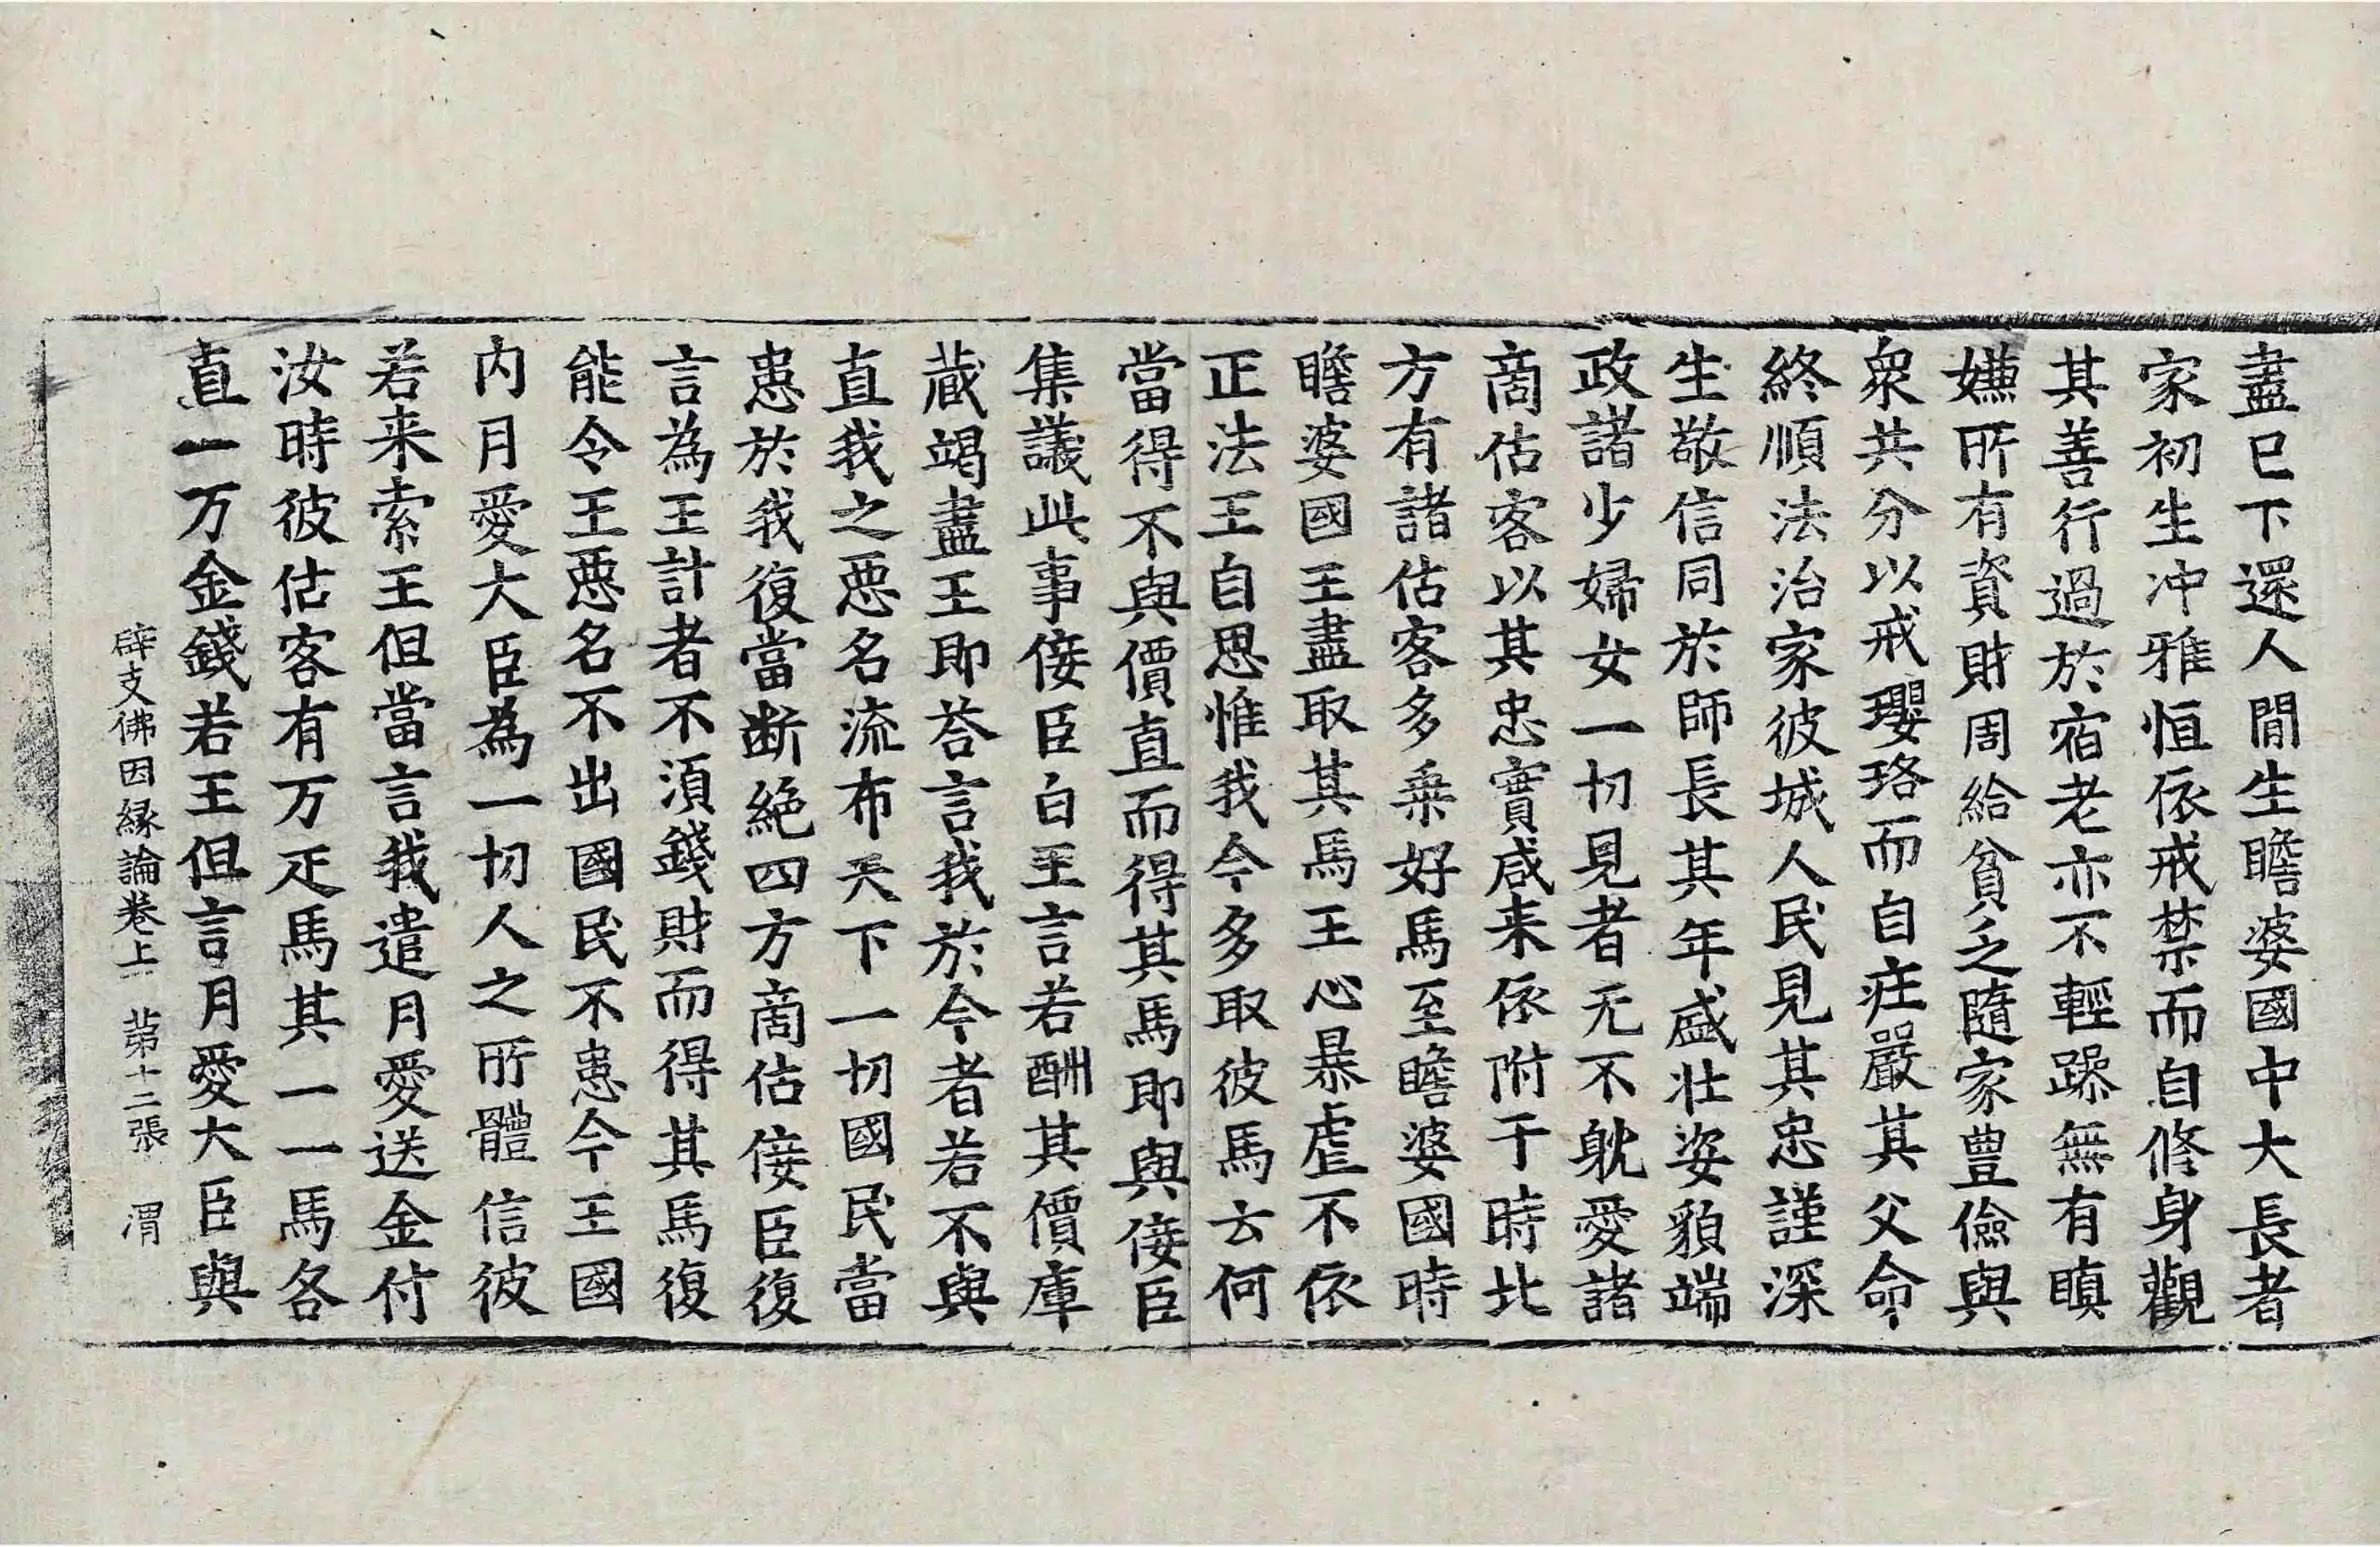 盡已下還人間生瞻婆國中大長者
家初生冲雅恒依戒禁而自修身觀
其善行過於宿老亦不輕躁無有瞋
嫌所有資財周給貧乏隨家豊儉與
衆共分以戒瓔珞而自庄嚴其父命
終順法治家彼城人民見其忠謹深
生敬信同於師長其年盛壮姿貌端
政諸少婦女一切見者无不躭愛諸
商估客以其忠實咸来依附于時北
方有諸估客多乗好馬至瞻婆國時
瞻婆國王盡取其馬王心暴虐不依
正法王自思惟我今多取彼馬云何
當得不與價直而得其馬即與佞臣
集議此事佞臣白王言若酬其價庫
蔵竭盡王即荅言我於今者若不與
直我之惡名流布天下一切國民當
恚於我復當断絶四方商估佞臣復
言為王計者不須錢財而得其馬復
能令王惡名不出國民不恚今王國
内月愛大臣為一切人之所體信彼
若来索王但當言我遣月愛送金付
汝時彼估客有万疋馬其一一馬各
直一万金錢若王但言月愛大臣與
辟支佛因縁論卷上 苐十二張 渭